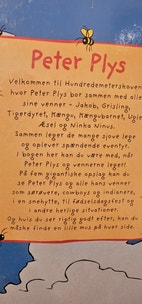 Peter Plys
Velkommen til Hundredemeterskoven
hvor Peter Plys bor sammen med alle
sine venner - Jakob, Grisling,
Tigerdyret, Kængu, Kængubarnet, Ugle
Æsel og Ninka Ninus.
Sammen leger de mange sjove lege
og oplever spændende eventyr.
I bogen her kan du være med, når
Peter Plys og vennerne leger!
På fem gigantiske opslag kan du
se Peter Plys og alle hans venner
som sørøvere, cowboys og indianere,
i en snehytte, til fødselsdagsfest og
i andre herlige situationer.
Og hvis du ser rigtig godt efter, kan du
måske finde en lille mus på hver side.